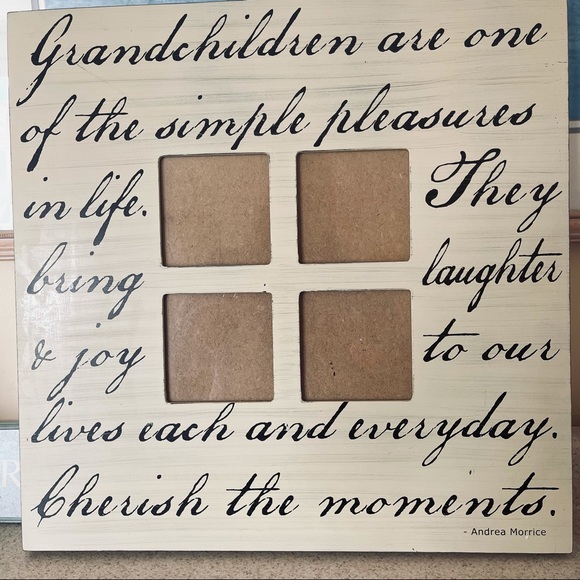 Grandchildren are one
of the simple pleasures
in life. They
bring laughter
& joy to our
lives each and everyday.
Cherish the moments.
- Andrea Morrice
R